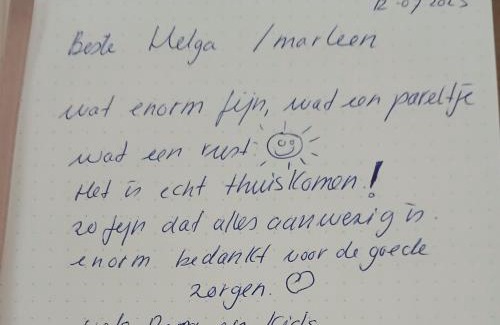 Beste Helga / marleen
wat enorm fijn, wad een pareltje
wad een rust
Het is echt thuiskomen!
zo fijn dat alles aanwezig is.
enorm bedankt voor de goede
zorgen.